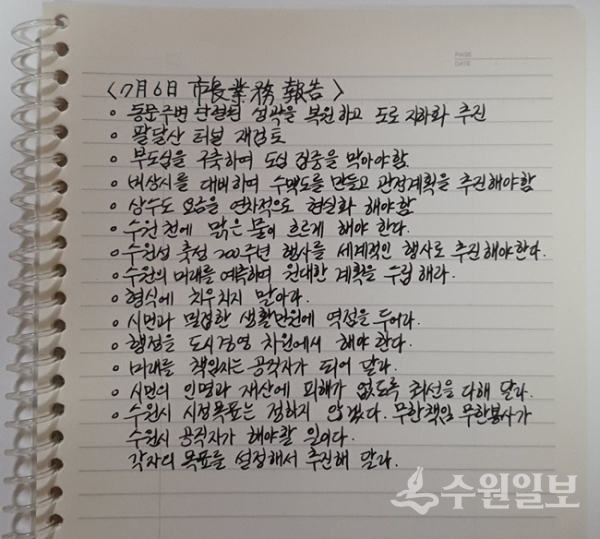 PAGE
DATE
〈7月6日 市長業務 報告〉
◦ 동문주변 단절된 성곽을 복원하고 도로 지하화 추진
◦ 팔달산 터널 재검토
◦ 부도심을 구축하여 도심 집중을 막아야함
◦ 비상시를 대비하여 수맥도를 만들고 관정계획을 추진해야함
◦ 상수도 요금을 연차적으로 현실화 해야함
◦ 수원천에 맑은 물이 흐르게 해야 한다.
◦ 수원성 축성 200주년 행사를 세계적인 행사로 추진해야한다.
◦ 수원의 미래를 예측하여 원대한 계획을 수립 해라.
◦ 형식에 치우치지 말아라.
◦ 시민과 밀접한 생활민원에 역점을 두어라.
◦ 행정을 도시경영 차원에서 해야 한다.
◦ 미래를 책임지는 공직자가 되어 달라.
◦ 시민의 인명과 재산에 피해가 없도록 최선을 다해 달라.
◦ 수원시 시정목표는 정하지 않겠다. 무한책임 무한봉사가
수원시 공직자가 해야할 일이다.
각자의 목표를 설정해서 추진해 달라.
수원일보